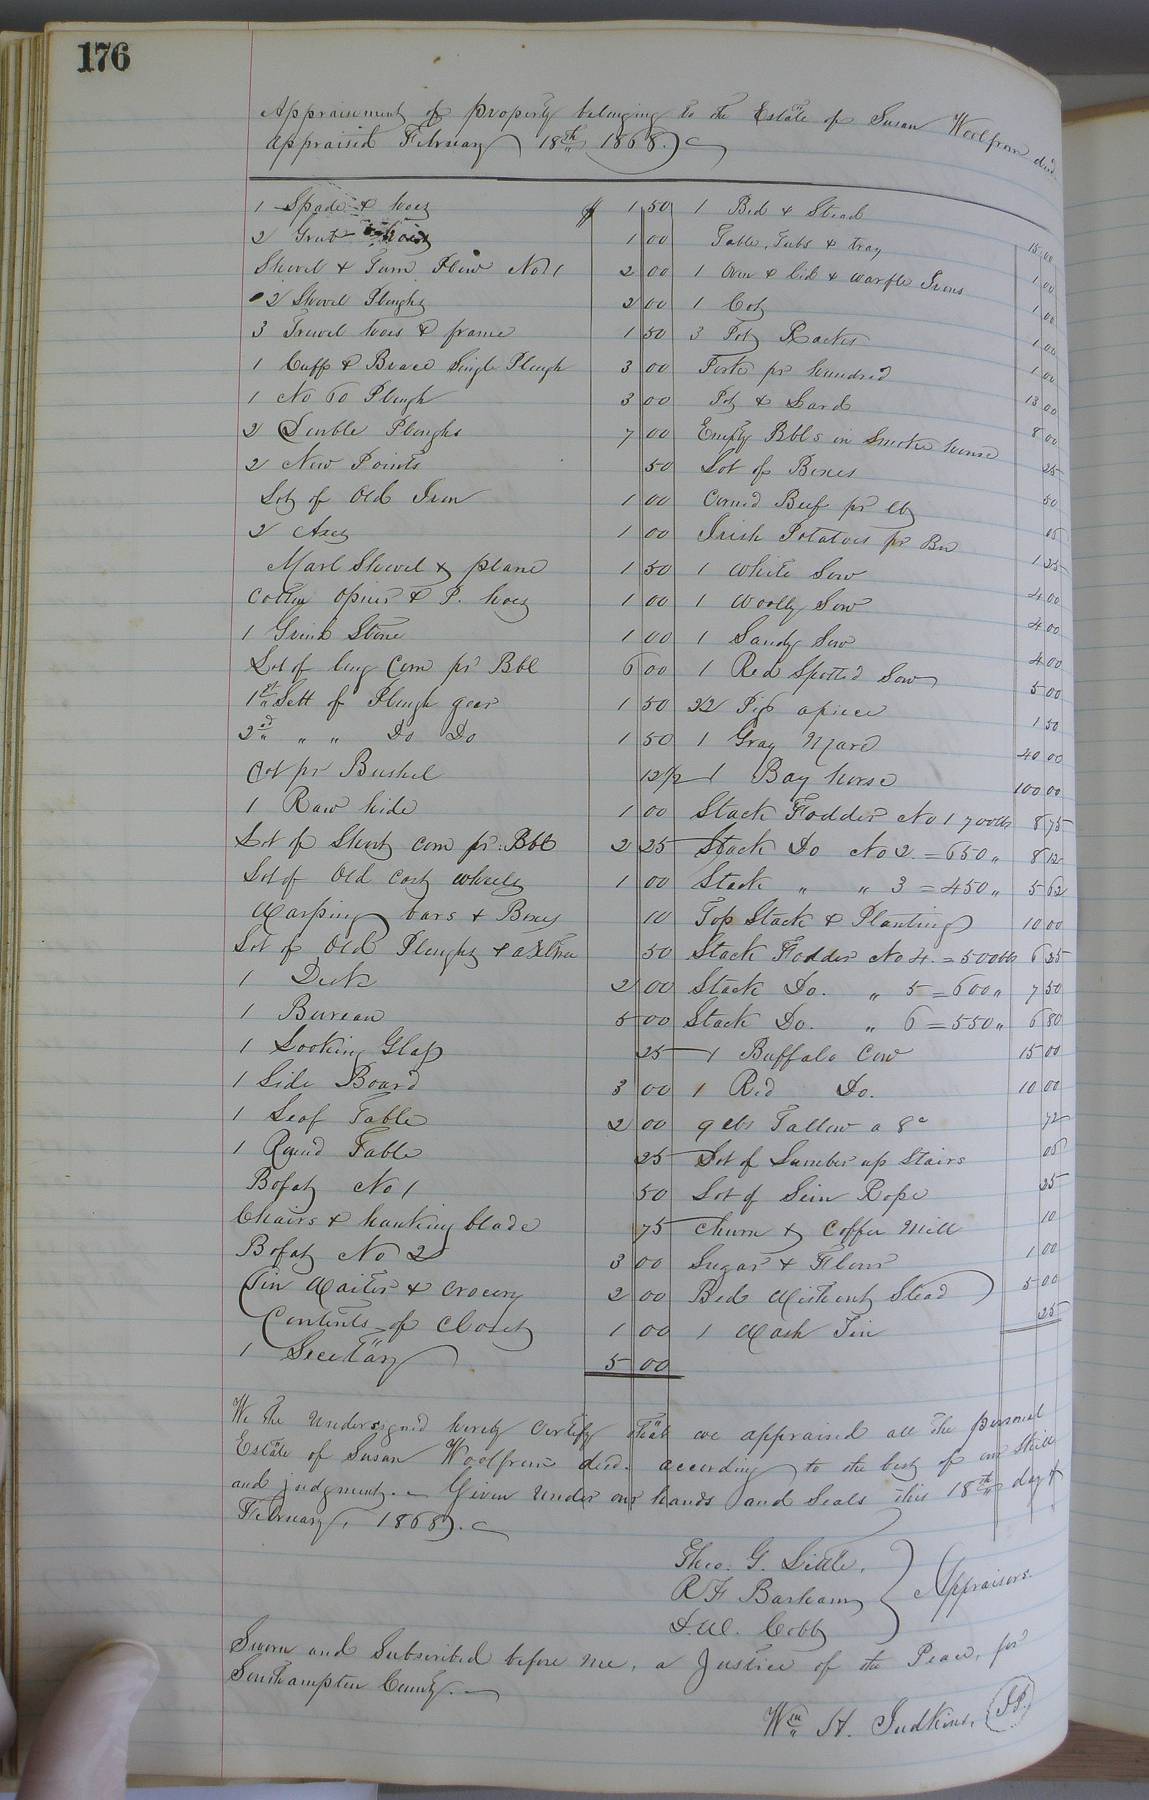 176
Appraisement of property belonging to the Estate of Susan Woolfrom decd.
appraised February 18th 1868.
1 Spade & hoes $ 1 50
2 Grub hoes 1 00
Shovel & Turn Plow No 1 2 00
2 Shovel Ploughs 2 00
3 Trowel hoes & frame 1 50
1 Cuff & Brace Single Plough 3 00
1 No 60 Plough 3 00
2 Double Ploughs 7 00
2 New Points 50
Lot of Old Iron 1 00
2 Axes 1 00
Marl Shovel & plane 1 50
Cotton opener & P. hoes 1 00
1 Grind Stone 1 00
Lot of long Corn pr Bbl 6 00
1st Sett of Plough gear 1 50
2nd " " Do Do 1 50
Oot pr Bushel 12 1/2
1 Raw hide 1 00
Lot of Short corn pr. Bbl 2 25
Lot of Old Cart wheels 1 00
Warping bars & Boxes 10
Lot of Old Ploughs & axltree 50
1 Desk 2 00
1 Bureau 5 00
1 Looking Glass 25
1 Side Board 3 00
1 Leaf Table 2 00
1 Round Table 25
Bofat No 1 50
Chairs & hanking blade 75
Bofat No 2 3 00
Tin Waiter & Crocery 2 00
Contents of Closet 1 00
1 Secetary 5 00
1 Bed & Stead 15 00
Table, Tubs & tray 1 00
1 Oven & lid & warfle Irons 1 00
1 Cot 1 00
3 Pot Racks 1 00
Pork pr hundred 13 00
Pot & Lard 8 00
Empty Bbls in Smoke house 25
Lot of Boxes 50
Corned Beef pr lb 05
Irish Potatoes pr Bu 1 25
1 White Sow 4 00
1 Woolly Sow 4 00
1 Sandy Sow 4 00
1 Red Spotted Sow 5 00
22 Pigs apiece 1 50
1 Gray Mare 40 00
1 Bay horse 100 00
Stack Fodder No 1 700lbs 8 75
Stack Do No 2. = 650 " 8 12
Stack " " 3 = 450 " 5 62
Top Stack & Planting 10 00
Stack Fodder No 4. = 500lbs 6 25
Stack Do. " 5 = 600 " 7 50
Stack Do. " 6 = 550 " 6 80
1 Buffalo Cow 15 00
1 Red Do. 10 00
9 lbs Tallow a 8c 72
Lot of Lumber up Stairs 05
Lot of Sein Rope 25
Churn & Coffee Mill 10
Sugar & Flour 1 00
Bed Without Stead 5 00
1 Wash Tin 25
We the undersigned hereby certify that we appraised all the personal
Estate of Susan Woolfrom decd. according to the best of our Skill
and judgment. Given under our hands and Seals this 18th day of
February, 1868.
Theo. G. Little,
R F Barham
D. W. Cobb
Appraisers.
Sworn and Subscribed before me, a Justice of the Peace, for
Southampton County.
Wm H. Judkins, J.P.